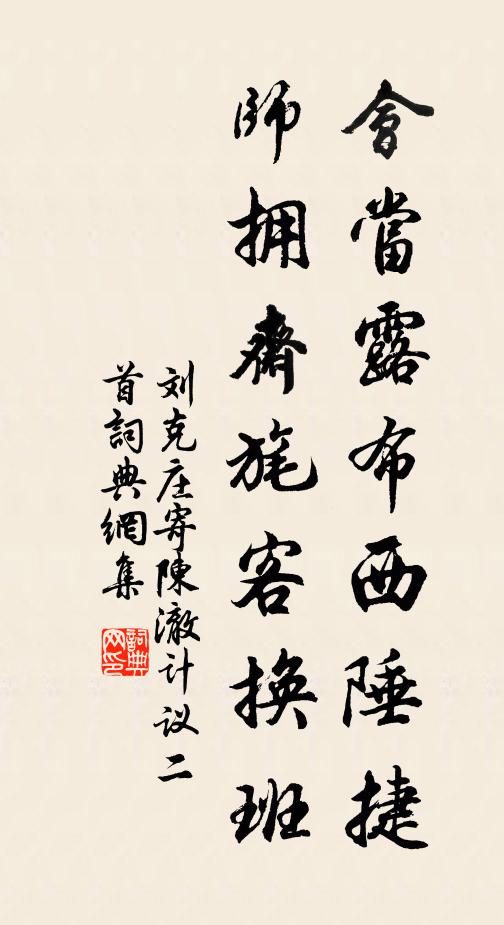 會當露布西陲捷
師拥齋旄客换班
刘克庄寄陳澈计议二
首詞典網集
詞典网印